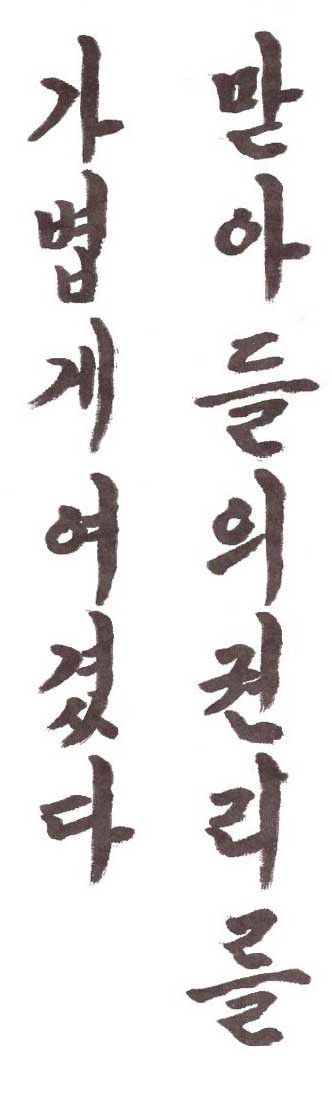 맏아들의권리를
가볍게여겼다